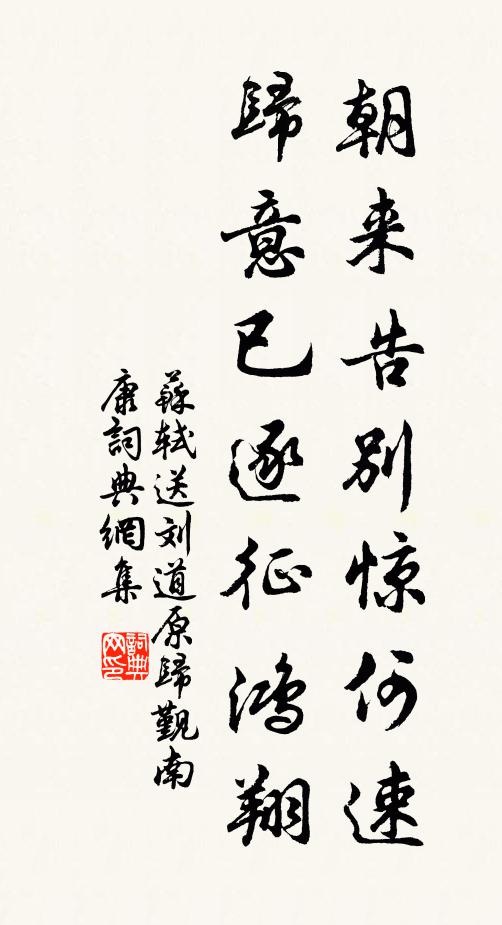 朝来告别惊何速
歸意已逐征鴻翔
蘇軾送刘道原歸觐南
康詞典網集
詞典网印